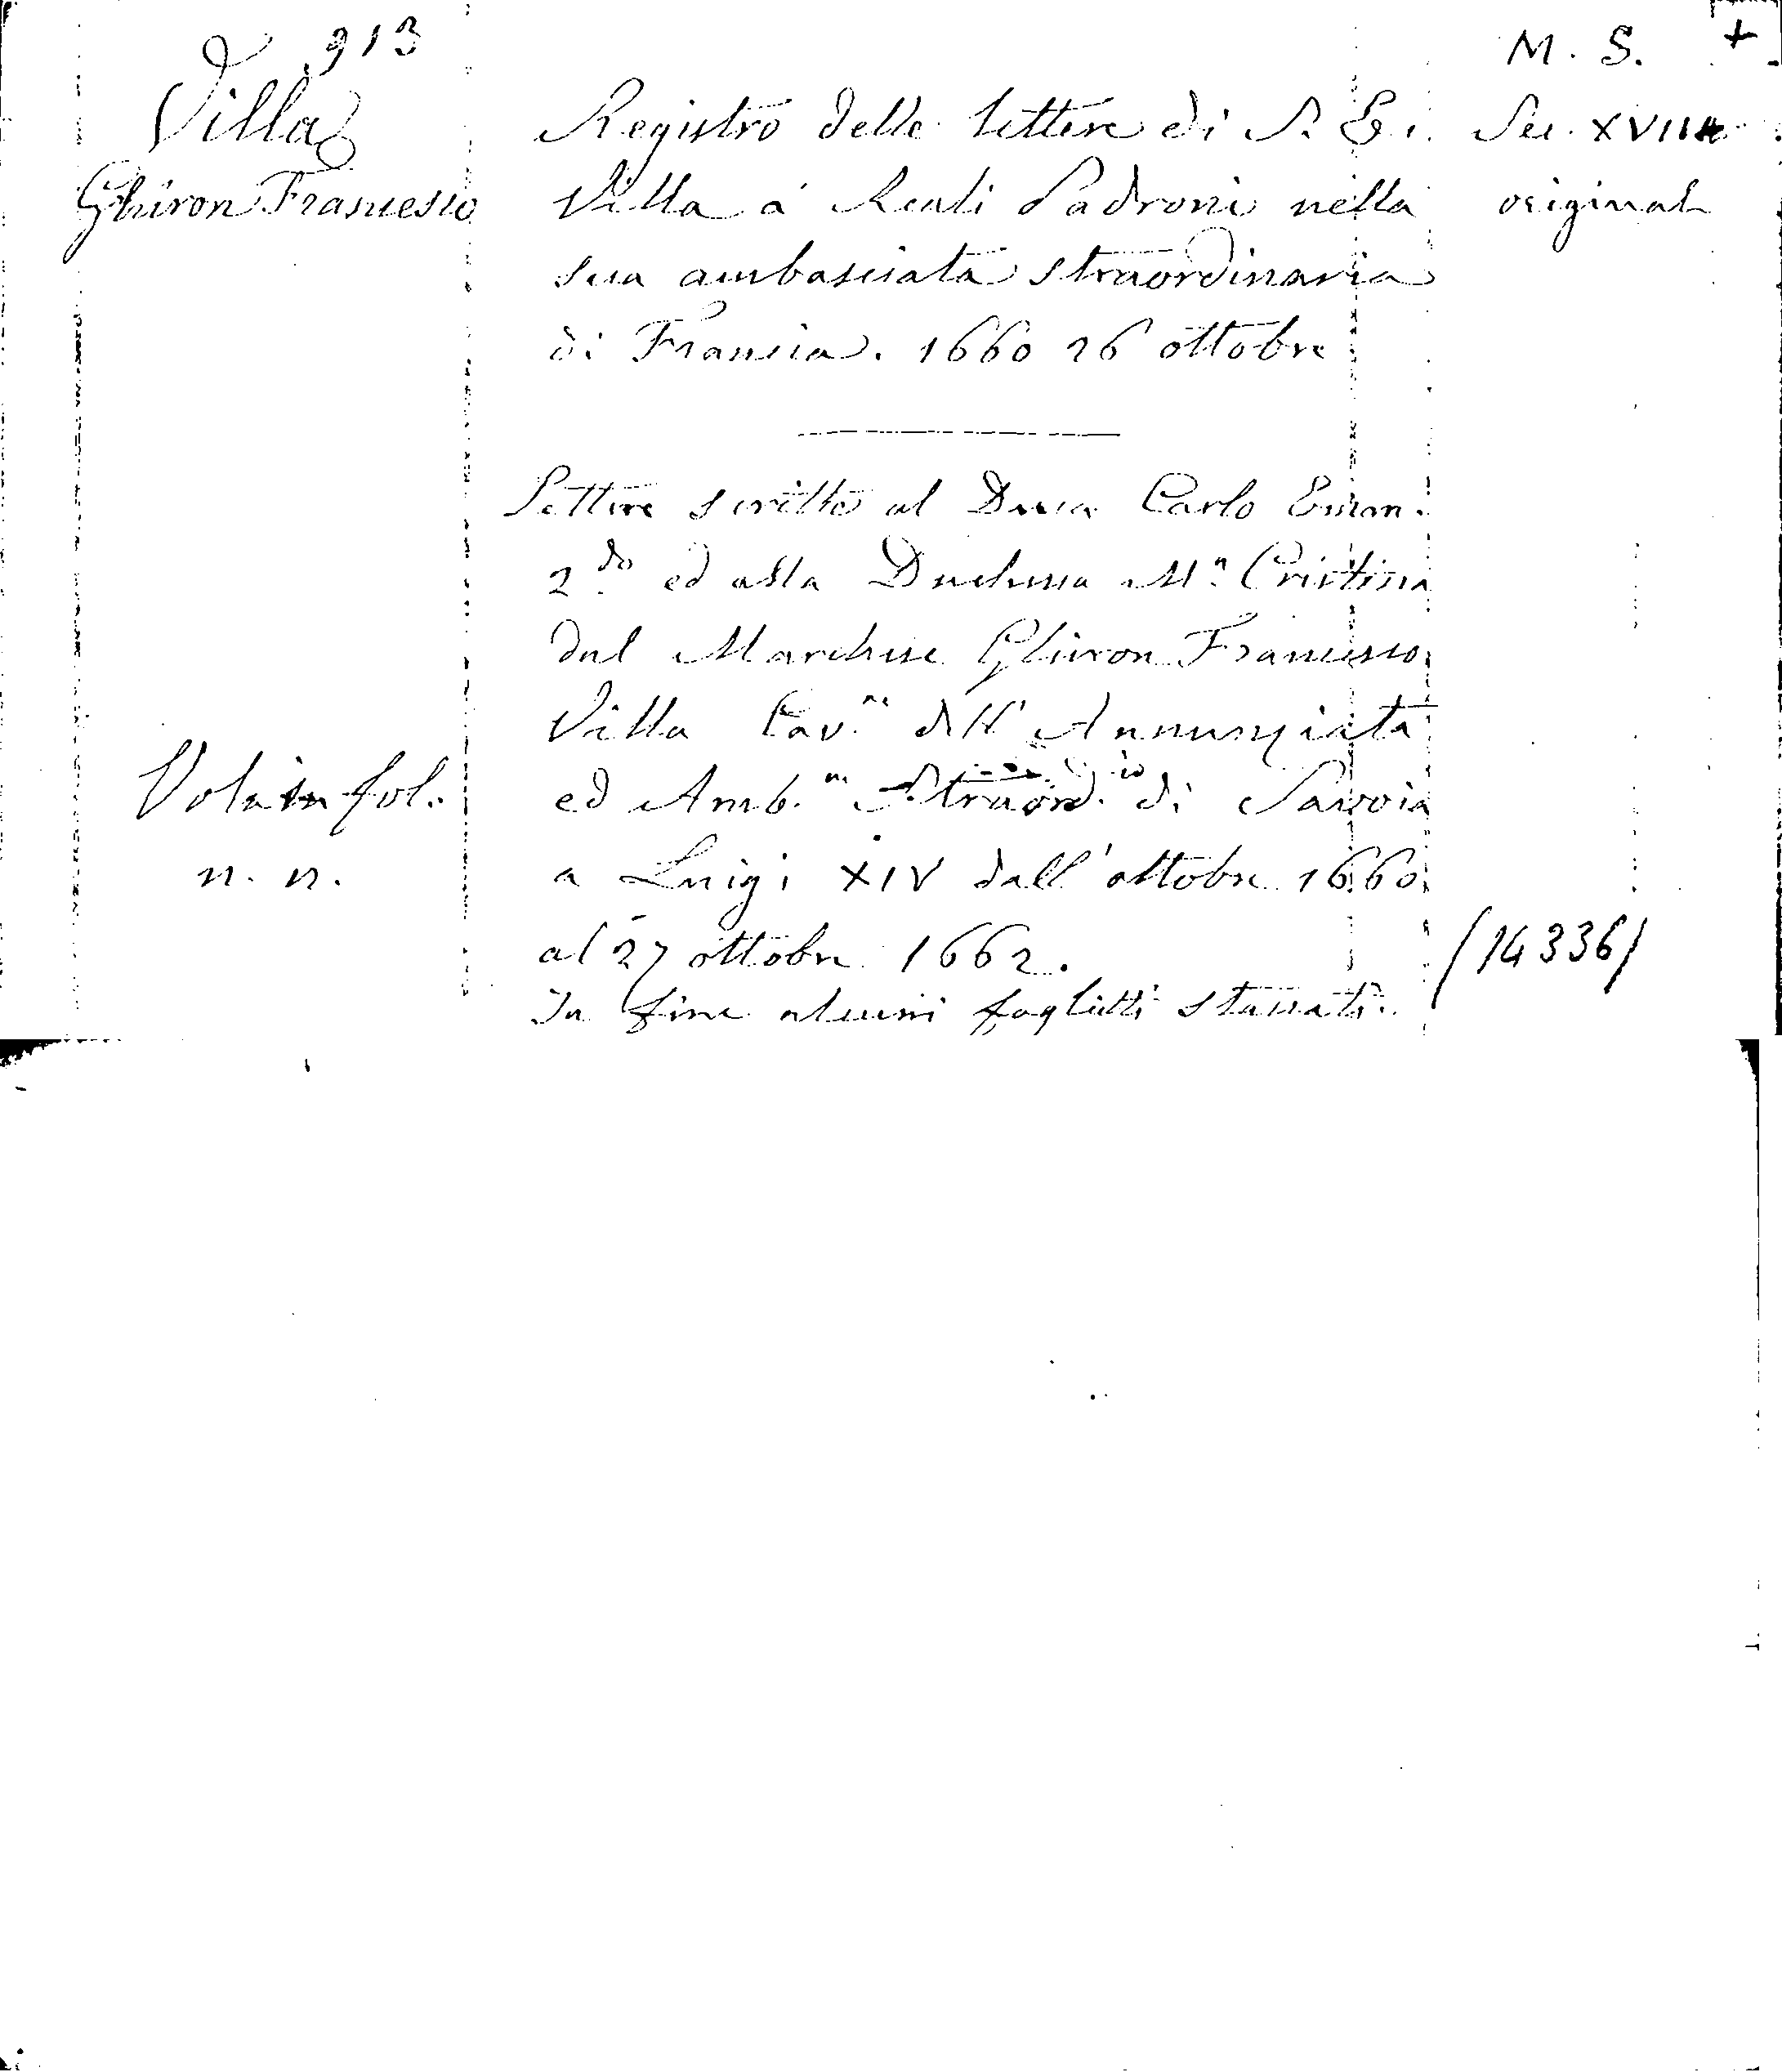 913
M. S. +
Villa
Ghiron Francesco
Registro delle lettere di S. E.
Villa a' Reali Padroni nella
sua ambasciata straordinaria
di Francia. 1660 26 ottobre
Sec. XVII
original
Lettere scritte al Duca Carlo Eman.
2.do ed alla Duchessa M.a Cristina
dal Marchese Ghiron Francesco
Villa Cav.re dell'Annunziata
ed Amb.re Straord.io di Savoia
a Luigi XIV dall'ottobre 1660
al 27 ottobre 1662.
In fine alcuni foglietti staccati.
Vol. in fol.
n. n.
/14336/